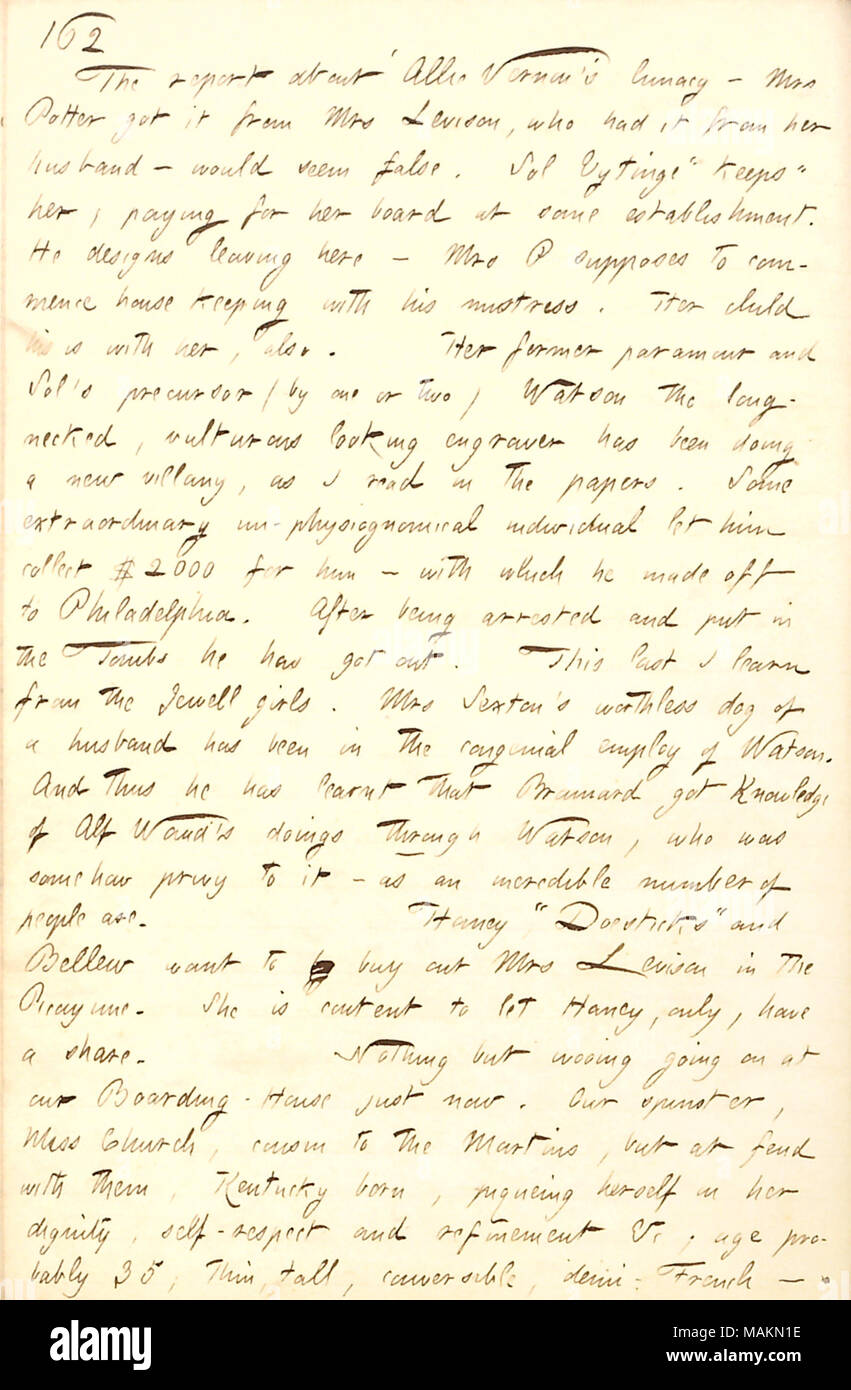 162
The report about Allie Vernon's lunacy — Mrs
Potter got it from Mrs Levison, who had it from her
husband — would seem false. Sol Eytinge "keeps"
her, paying for her board at some establishment.
He designs leaving here — Mrs P supposes to com-
mence house keeping with his mistress. Her child
his is with her, also. Her former paramour and
Sol's precursor (by one or two) Watson the long-
necked, vulturous looking engraver has been doing
a new villany, as I read in the papers. Some
extraordinary un-physiognomical individual let him
collect $2000 for him — with which he made off
to Philadelphia. After being arrested and put in
the Tombs he has got out. This last I learn
from the Jewell girls. Mrs Sexton's worthless dog of
a husband has been in the congenial employ of Watson.
And thus he has learnt that Brainard got knowledge
of Alf Waud's doings through Watson, who was
somehow privy to it — as an incredible number of
people are. Haney, "Doesticks" and
Bellew want to buy out Mrs Levison in the
Picayune. She is content to let Haney, only, have
a share. Nothing but wooing going on at
our Boarding-House just now. Our spinster,
Miss Church, cousin to the Martins, but at feud
with them, Kentucky born, piqueing herself on her
dignity, self-respect and refinement &c, age pro-
bably 35, thin, tall, conversible, demi-French —
alamy
Image ID: MAKN1E
www.alamy.com